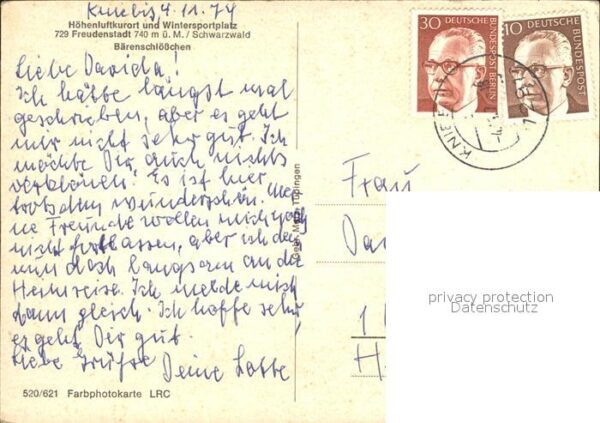 Kniebis, 4.11.74
Höhenluftkurort und Wintersportplatz
729 Freudenstadt 740 m ü. M./Schwarzwald
Bärenschlößchen
Liebe Davida!
Ich hätte längst mal
geschrieben, aber es geht
mir nicht sehr gut. Ich
möchte Dir auch nichts
Es ist hier
trotzdem wunderschön. Mei
ne Freunde wollen mich noch
nicht fortlassen, aber ich denke
nun doch langsam an die
Heimreise. Ich melde mich
dann gleich. Ich hoffe sehr,
es geht Dir gut.
Liebe Grüße Deine Lotte
520/621 Farbphotokarte LRC
Gebr. Metz Tübingen
30 DEUTSCHE BUNDESPOST BERLIN
10 DEUTSCHE BUNDESPOST
Frau
Da
1
H
privacy protection
Datenschutz